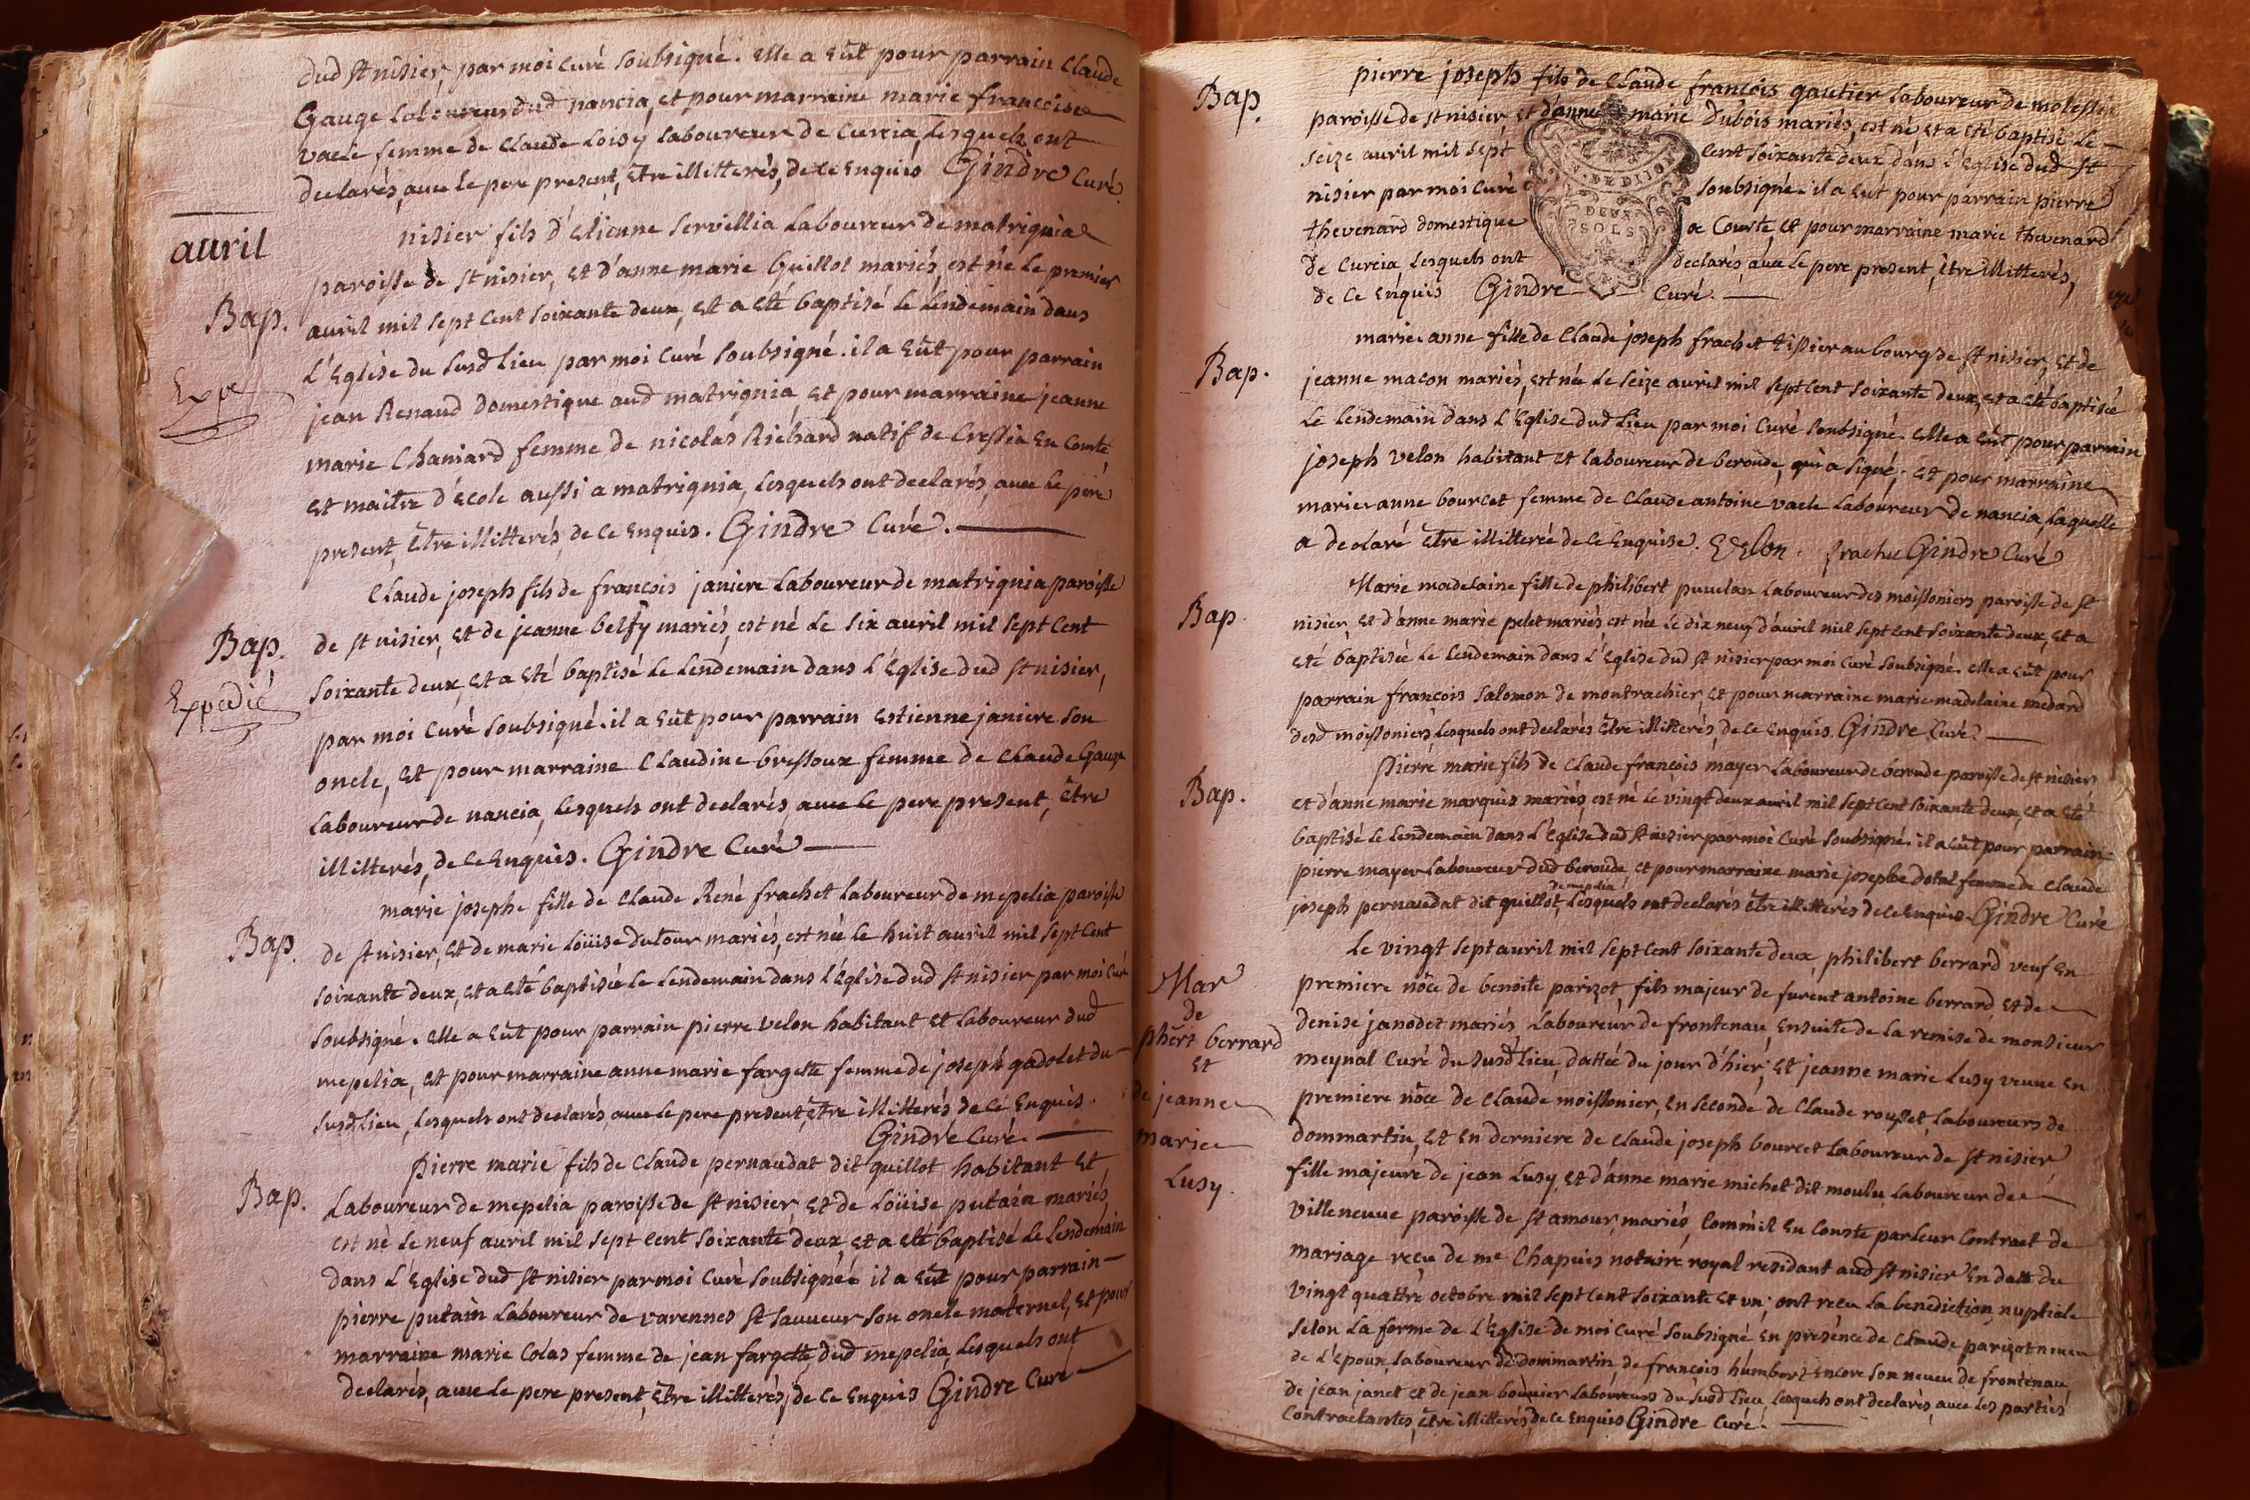 dud st nisier, par moi curé soubsigné. elle a eût pour parrain claude
Gauge laboureur dud nancia, et pour marraine marie francoise
vacle femme de claude Loisy laboureur de curcia, lesquels ont
declarés, avec le pere present, être illitterés, de ce enquis Gindre curé
avril
nisier fils d'étienne servillia laboureur de matrignia
paroisse de st nisier, et d'anne marie Guillot mariés, est né le premier
Bap.
avril mil sept cent soixante deux, et a eté baptisé le lendemain dans
l'Eglise du susd lieu par moi curé soubsigné. il a eût pour parrain
Expé
jean Renaud domestique aud matrignia, et pour marraine jeanne
marie Chaniard femme de nicolas Richard natif de Cressia en comté
et maitre d'ecole aussi a matrignia, lesquels ont declarés, avec le pere
present, être illitterés, de ce enquis. Gindre curé.
Claude joseph fils de francois janiere laboureur de matrignia paroisse
Bap.
de st nisier, et de jeanne belfy mariés, est né le six avril mil sept cent
Expedié
soixante deux, et a eté baptisé le lendemain dans l'Eglise dud st nisier,
par moi curé soubsigné. il a eût pour parrain estienne janiere son
oncle, et pour marraine Claudine bressoux femme de claude Gauge
laboureur de nancia, lesquels ont declarés, avec le pere present, être
illitterés, de ce enquis. Gindre curé
marie josephe fille de claude René frachet laboureur de mepelia paroisse
Bap.
de st nisier, et de marie Loüise dutour mariés, est née le huit avril mil sept cent
soixante deux, et a eté baptisée le lendemain dans l'Eglise dud st nisier par moi curé
soubsigné. elle a eût pour parrain pierre velon habitant et laboureur dud
mepelia, et pour marraine anne marie fargette femme de joseph gadolet du
susd lieu, lesquels ont declarés, avec le pere present, être illitterés de ce enquis.
Gindre curé.
Pierre marie fils de claude pernaudat dit quillot habitant et
Bap.
laboureur de mepelia paroisse de st nisier, et de Loüise putain mariés
est né le neuf avril mil sept cent soixante deux, et a eté baptisé le lendemain
dans l'Eglise dud st nisier par moi curé soubsigné. il a eût pour parrain
pierre putain laboureur de varennes st sauveur son oncle maternel, et pour
marraine marie Colas femme de jean fargette dud mepelia, lesquels ont
declarés, avec le pere present, être illitterés, de ce enquis Gindre curé
Bap.
pierre joseph fils de claude francois gautier laboureur de
paroisse de st nisier et d'anne marie Dubois mariés, est né et a eté baptisé le
seize avril mil sept cent soixante deux dans l'Eglise dud st
nisier par moi curé soubsigné. il a eût pour parrain pierre
thevenard domestique a Couste, et pour marraine marie thevenard
de curcia, lesquels ont declarés, avec le pere present, être illitterés,
de ce enquis Gindre curé.
DE DIJON
DEUX
SOLS
marie anne fille de claude joseph frachet tissier au bourg de st nisier, et de
Bap.
jeanne macon mariés, est née le seize avril mil sept cent soixante deux, et a eté baptisée
le lendemain dans l'Eglise dud lieu par moi curé soubsigné. elle a eût pour parrain
joseph velon habitant et laboureur de beroude, qui a signé; et pour marraine
marie anne bourcet femme de claude antoine vacle laboureur de nancia, laquelle
a declaré être illitterée de ce enquise. Velon. frachet Gindre curé
Marie madelaine fille de philibert puvelan laboureur des moissoniers paroisse de st
Bap.
nisier, et d'anne marie pelet mariés est née le dix neuf d'avril mil sept cent soixante deux, et a
eté baptisée le lendemain dans l'Eglise dud st nisier par moi curé soubsigné. elle a eût pour
parrain francois salomon de montrachier, et pour marraine marie madelaine medard
desd moissoniers, lesquels ont declarés être illitterés, de ce enquis. Gindre curé.
Pierre marie fils de claude francois mayer laboureur de beroude paroisse de st nisier
Bap.
et d'anne marie marquis mariés, est né le vingt deux avril mil sept cent soixante deux, et a eté
baptisé le lendemain dans l'Eglise dud st nisier par moi curé soubsigné. il a eût pour parrain
pierre mayer laboureur dud beroude, et pour marraine marie josephe dotal femme de claude
joseph pernaudat dit quillot de mepelia, lesquels ont declarés être illitterés de ce enquis. Gindre curé
Le vingt sept avril mil sept cent soixante deux, philibert berrard veuf en
Mar
de
phert berrard
et
de jeanne
marie
Lusy.
premiere nôce de benoite parizot, fils majeur de furent antoine berrard et de
denise janodet mariés, laboureur de frontenau, ensuite de la remise de monsieur
meynal curé du susd lieu, dattée du jour d'hier; et jeanne marie Lusy veuve en
premiere nôce de claude moissonier, en seconde de claude rousset laboureurs de
dommartin, et en derniere de claude joseph bourcet laboureur de st nisier
fille majeure de jean Lusy, et d'anne marie michet dit moulu laboureur de
villeneuve paroisse de st amour, mariés, comm'il en conste par leur contract de
mariage reçu de me Chapuis notaire royal residant aud st nisier en datte du
vingt quattre octobre mil sept cent soixante et un; ont recu la benediction nuptiale
selon la forme de l'Eglise de moi curé soubsigné en presence de claude parizot neveu
de l'Epoux laboureur de dommartin, de francois humbert encore son neveu de frontenau,
de jean janet et de jean bouvier laboureurs du susd lieu, lesquels ont declarés, avec les parties
contractantes, être illitterés, de ce enquis Gindre curé.